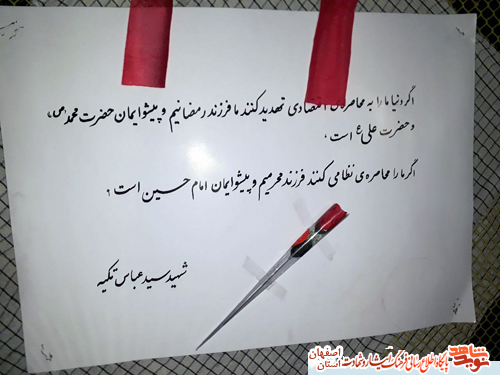 اگر دنیا ما را به محاصره‌ی اقتصادی تهدید کنند ما فرزند رمضانیم و پیشوایمان حضرت محمد(ص)
و حضرت علی ع است .
اگر ما را محاصره‌ی نظامی کنند فرزند محرمیم و پیشوایمان امام حسین است ؟
شهید سید عباس تکیه
نوید شاهد
پایگاه اطلاع رسانی فرهنگ ایثار و شهادت
استان اصفهان